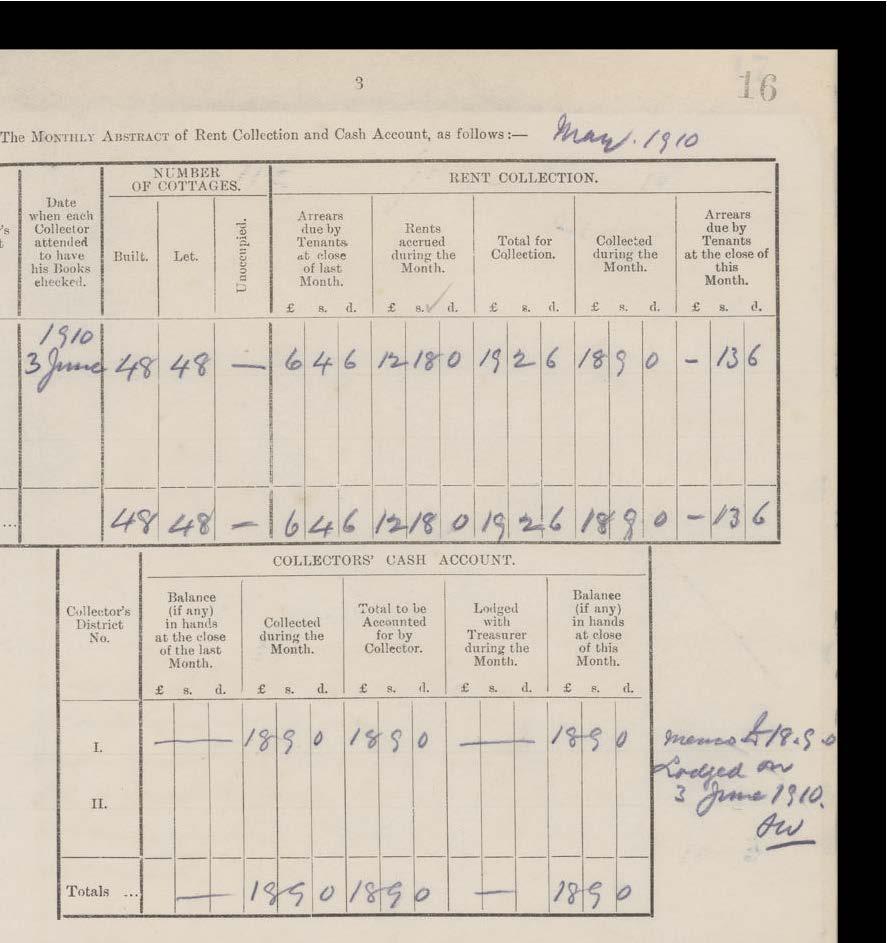 3
16
The MONTHLY ABSTRACT of Rent Collection and Cash Account, as follows:— May. 1910
NUMBER OF COTTAGES.
RENT COLLECTION.
Date when each Collector attended to have his Books checked.
Built.
Let.
Unoccupied.
Arrears due by Tenants at close of last Month.
Rents accrued during the Month.
Total for Collection.
Collected during the Month.
Arrears due by Tenants at the close of this Month.
£ s. d. £ s. d. £ s. d. £ s. d. £ s. d.
1910
3 June 48 48 — 6 4 6 12 18 0 19 2 6 18 9 0 - 13 6
... 48 48 — 6 4 6 12 18 0 19 2 6 18 9 0 - 13 6
COLLECTORS' CASH ACCOUNT.
Collector's District No.
Balance (if any) in hands at the close of the last Month.
Collected during the Month.
Total to be Accounted for by Collector.
Lodged with Treasurer during the Month.
Balance (if any) in hands at close of this Month.
£ s. d. £ s. d. £ s. d. £ s. d. £ s. d.
I. — 18 9 0 18 9 0 — 18 9 0
II.
Totals ... — 18 9 0 18 9 0 — 18 9 0
memo £18.9.0
Lodged on
3 June 1910.